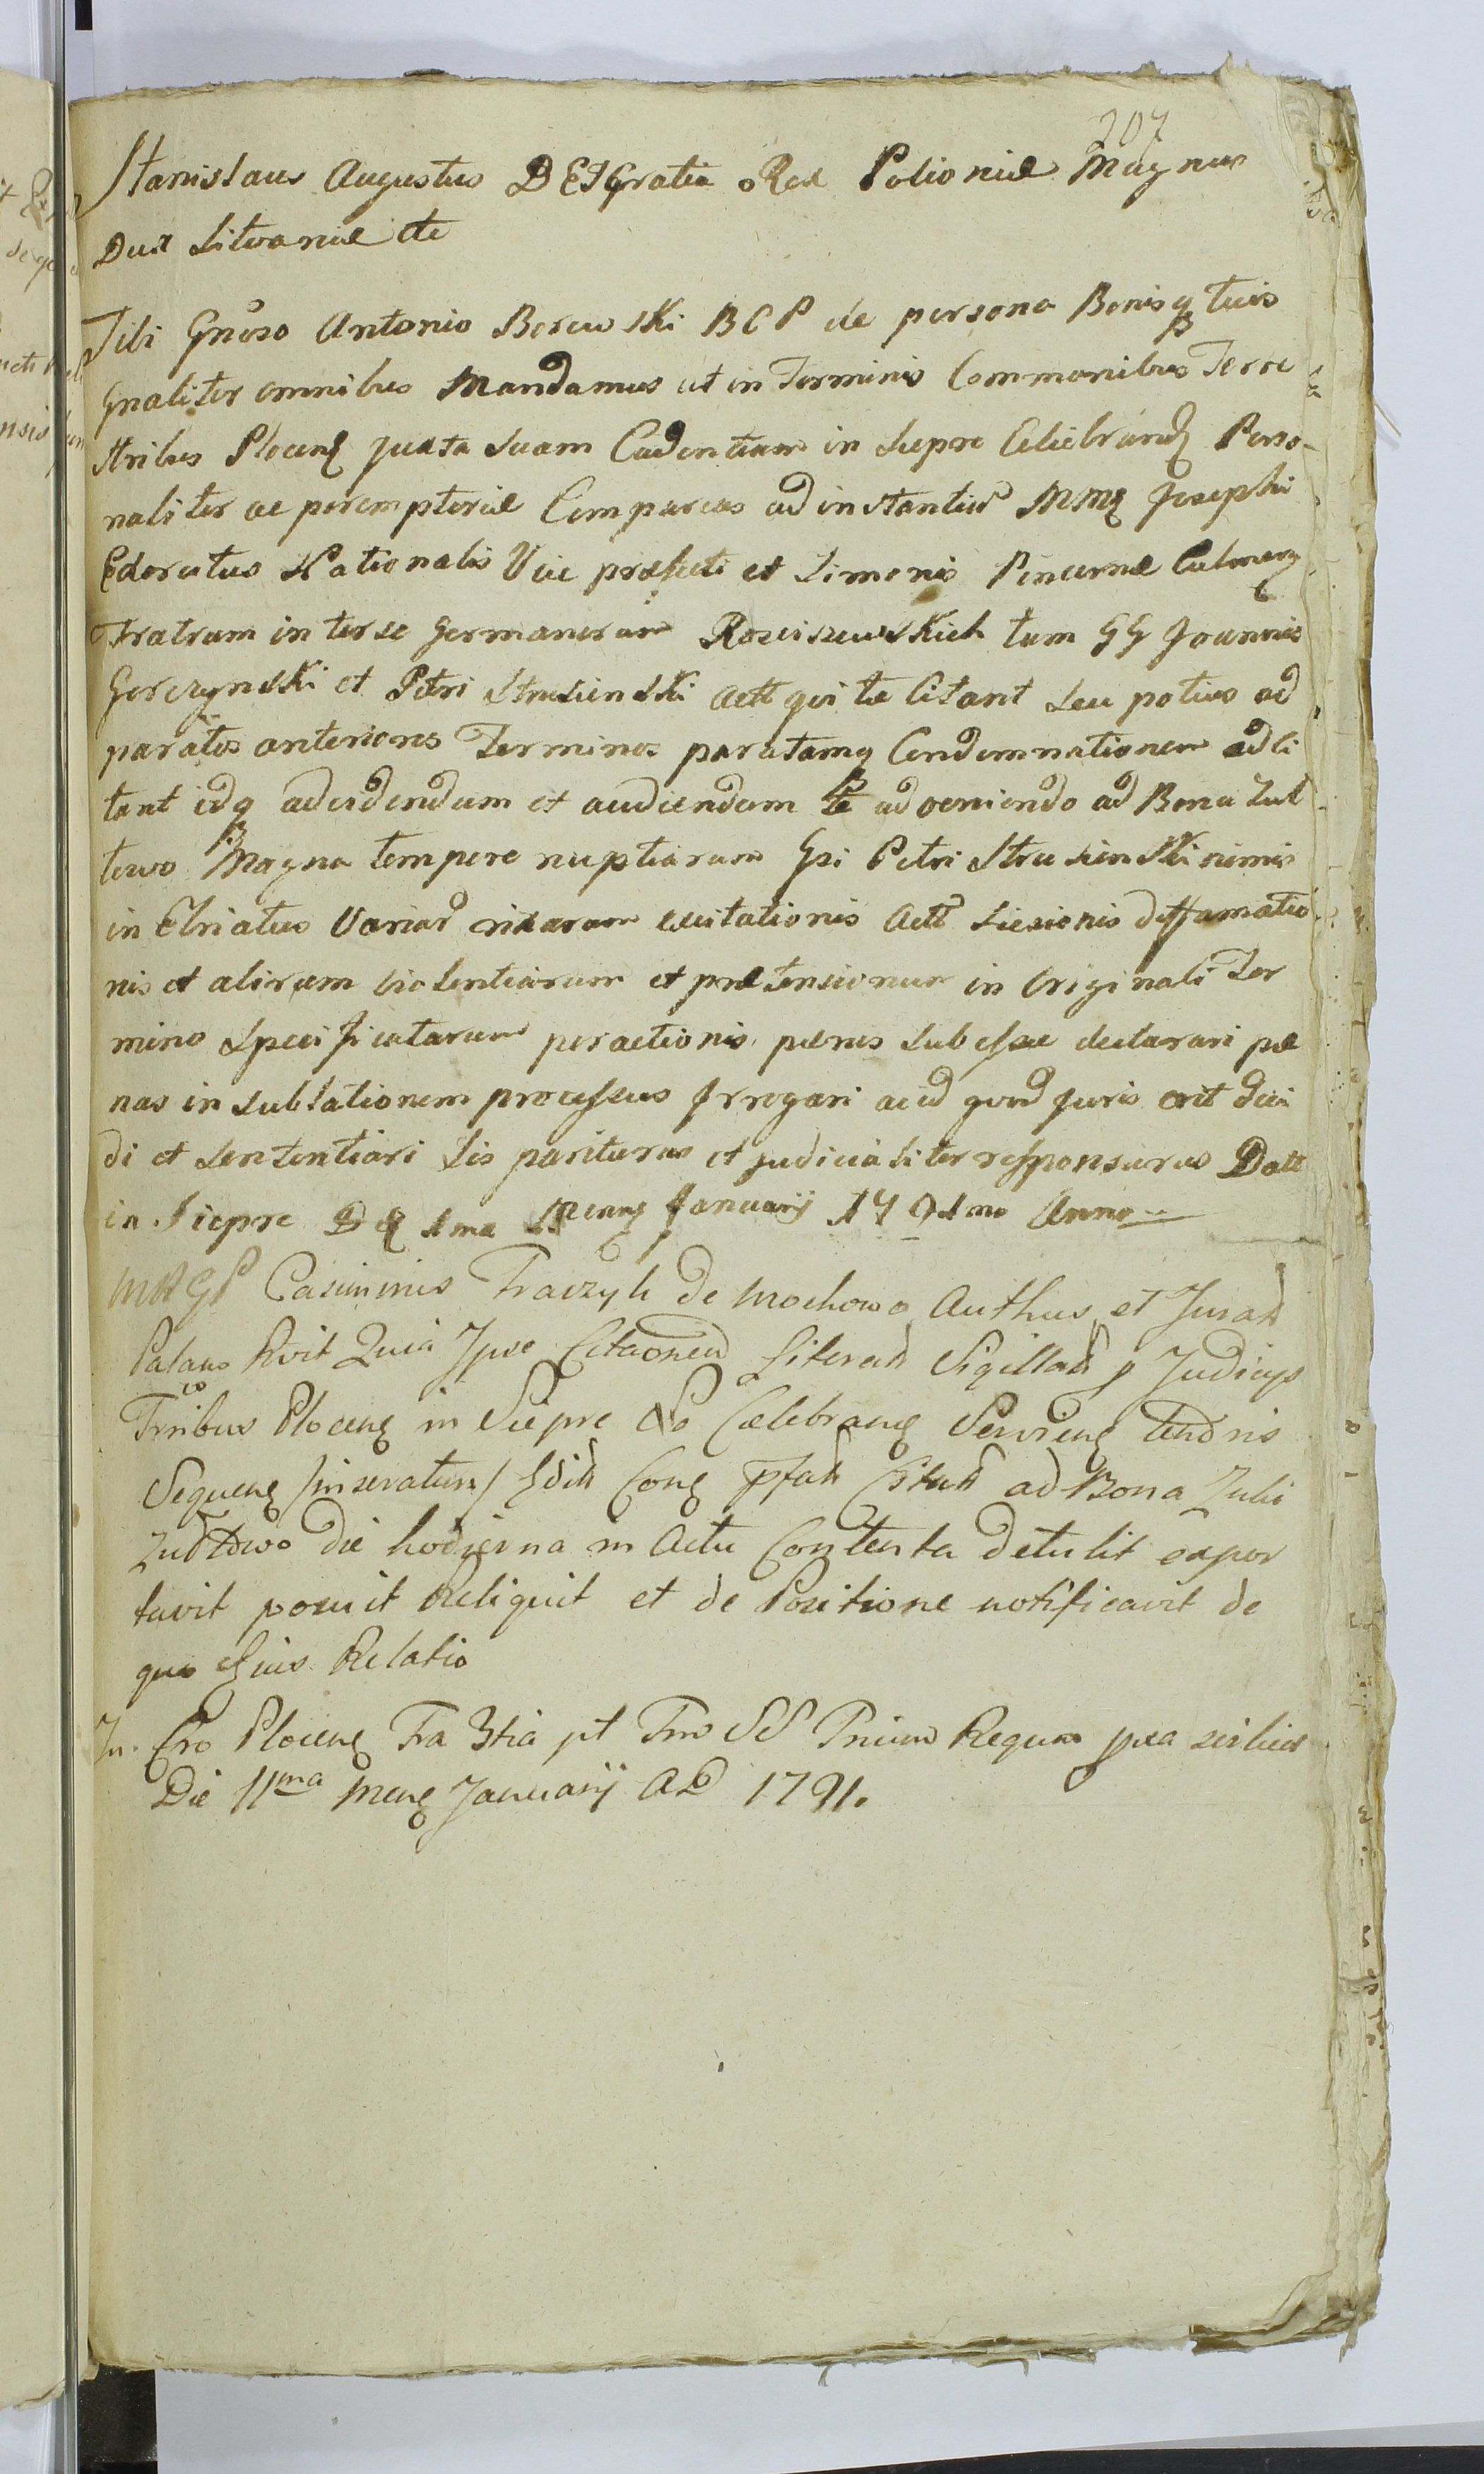 207
Stanislaus Augustus DEI Gratia Rex Polioniæ Magnus
Dux Litvaniæ etc
Tibi Gnoso Antonio Borewski BCP de persona Bonisq tuis
Gnaliter omnibus Mandamus ut in Terminis Commonibus Terre
stribus Plocens juxta suam Cadentiam in Siepre Celiebrand Perso-
naliter ac peremptoriæ Compareas ad instantiam MM Josephi
Edoratus Nationalis Vice præfecti et Simonis Pincernæ Culmens
Fratrum inter se Germanorum Rosciszewskich tum GG Joannis
Gorczynski et Petri Strusienski Actt qui te Citant seu potius ad
paratos anteriores Terminos paratamq Condemnationem adci
tant idq ad videndum et audiendum te adveniendo ad Bona Zul
towo Magna tempore nuptiarum Gsi Petri Strusienski nimis
in Ebriatus Variar rixarum excitationis Actt Liesionis diffamatio
nis et aliorum violentiarum et prætensionum in Originali Ter
mino specificatarum peractionis pænis subesse declarari pæ
nas in sublationem processus Irrogari acid quod juris erit dici
di et sententiari sis pariturus et judicialiter responsurus Datt
in Siepre D 1ma Mens Januarij 1791mo Anno
MRGP Casimirus Fraczyk de Mochowo Authus et Jurat
Palam Rvit Quia Ipse Citaonem Literat Sigillat p Judicijs
Trribus Plocens in Siepre Celebrans Serviens tenoris
Sequens /inseratur/ Edit Cons pfat Citat ad Bona Zulti
Zultowo die hodierna in Actu Contenta detulit expor
tavit posuit Reliquit et de Positione notificavit de
quo Ejus Relatio
In Cro Plocens Fra 3tia pt Fm SS Trium Regum pxa
Die 11ma Mens Januarij AD 1791.